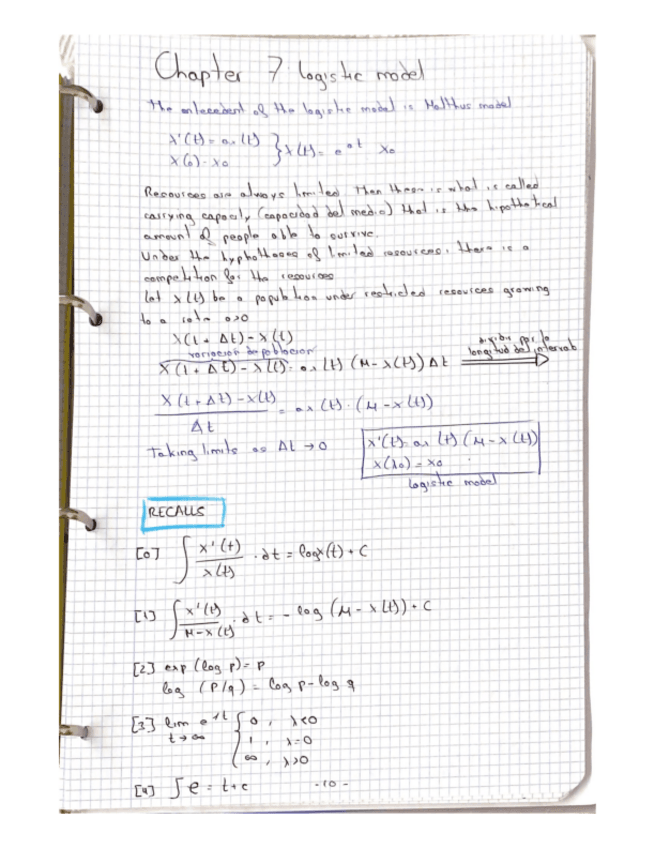 Chapter 7 logistic model
The antecedent of the logistic model is Malthus model
x'(t) = ax(t)
x(0) = x0 } x(t) = e^at x0
Resources are always limited then there is what is called
carrying capacity (capacidad del medio) that is the hipothetical
amount of people able to survive.
Under the hyphotheses of limited resources, there is a
competition for the resources
let x(t) be a population under restricted resources growing
to a rate a>0
x(t + Δt) - x(t)
variación de población
x(t + Δt) - x(t) = ax(t) (M - x(t)) Δt ⟹ dividir por la longitud del intervalo
(x(t + Δt) - x(t)) / Δt = ax(t) · (M - x(t))
Taking limits as Δt → 0
x'(t) = ax(t) (M - x(t))
x(t0) = x0
logistic model
RECALLS
[0] ∫ x'(t) / x(t) · dt = log x(t) + C
[1] ∫ x'(t) / (M - x(t)) · dt = - log (M - x(t)) + C
[2] exp (log p) = p
log (P/q) = log p - log q
[3] lim t→∞ e^λt { 0, λ<0
1, λ=0
∞, λ>0
[4] ∫ e = t + c
- 10 -